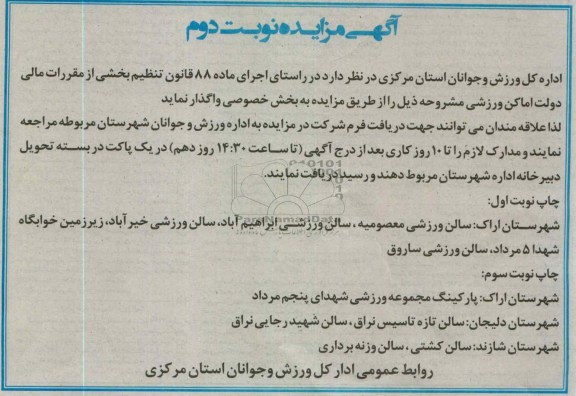 آگهی مزایده نوبت دوم
اداره کل ورزش و جوانان استان مرکزی در نظر دارد در راستای اجرای ماده ۸۸ قانون تنظیم بخشی از مقررات مالی
دولت اماکن ورزشی مشروحه ذیل را از طریق مزایده به بخش خصوصی واگذار نماید
لذا علاقه مندان می توانند جهت دریافت فرم شرکت در مزایده به اداره ورزش و جوانان شهرستان مربوطه مراجعه
نمایند و مدارک لازم را تا ۱۰ روز کاری بعد از درج آگهی (تا ساعت ۱۴:۳۰ روز دهم) در یک پاکت در بسته تحویل
دبیرخانه اداره شهرستان مربوط دهند و رسید دریافت نمایند.
چاپ نوبت اول:
شهرستان اراک: سالن ورزشی معصومیه ، سالن ورزشی ابراهیم آباد، سالن ورزشی خیر آباد، زیرزمین خوابگاه
شهدا ۵ مرداد، سالن ورزشی ساروق
چاپ نوبت سوم:
شهرستان اراک: پارکینگ مجموعه ورزشی شهدای پنجم مرداد
شهرستان دلیجان: سالن تازه تاسیس نراق ، سالن شهید رجایی نراق
شهرستان شازند: سالن کشتی ، سالن وزنه برداری
روابط عمومی ادار کل ورزش و جوانان استان مرکزی